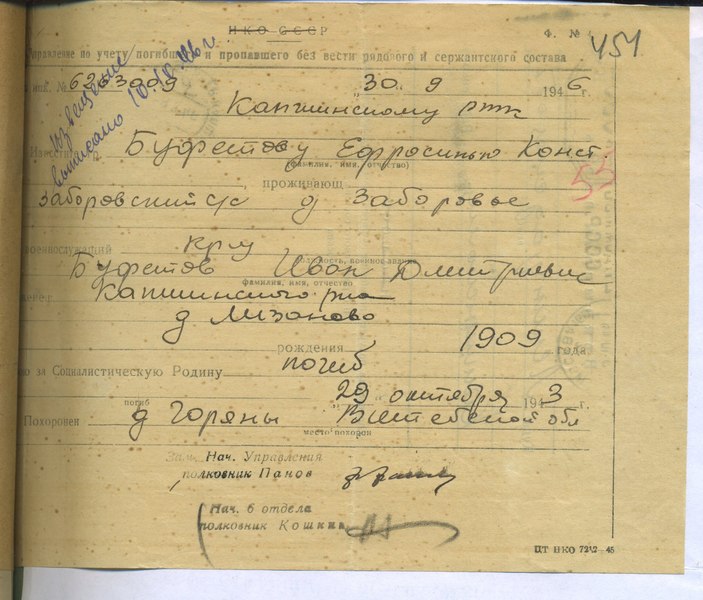 НКО СССР
Ф. №
451
Управление по учету погибшего и пропавшего без вести рядового и сержантского состава
извещение
выписано
№ 626309 "30" 9 1946 г.
Капшинскому рвк
Буфетову Ефросинью Конст.
(фамилия, имя, отчество)
55
, проживающ
Заборовский с/с д Заборовье
военнослужащий кр-ц
должность, военное звание
Буфетов Иван Дмитриевич
фамилия, имя, отчество
Капшинского р-на
д
рождения 1909 года
за Социалистическую Родину погиб
погиб
"29" октября 1943 г.
Похоронен д Горяны Витебской обл
место похорон
Зам. Нач. Управления
полковник Панов
Нач. 6 отдела
полковник Кошкин
ЦТ НКО 7212—45